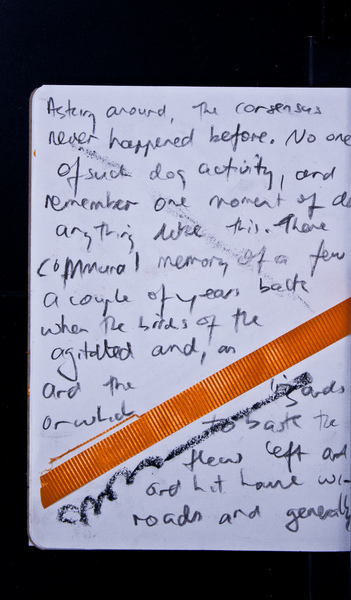 Asking around, the consensus
never happened before. No one
of such dog activity, and
remember one moment of do
anything like this. There
communal memory of a few
a couple of years back
when the birds of the
agitated and, on
and the
or which
to baste the
flew left and
and hit house wi
roads and generally